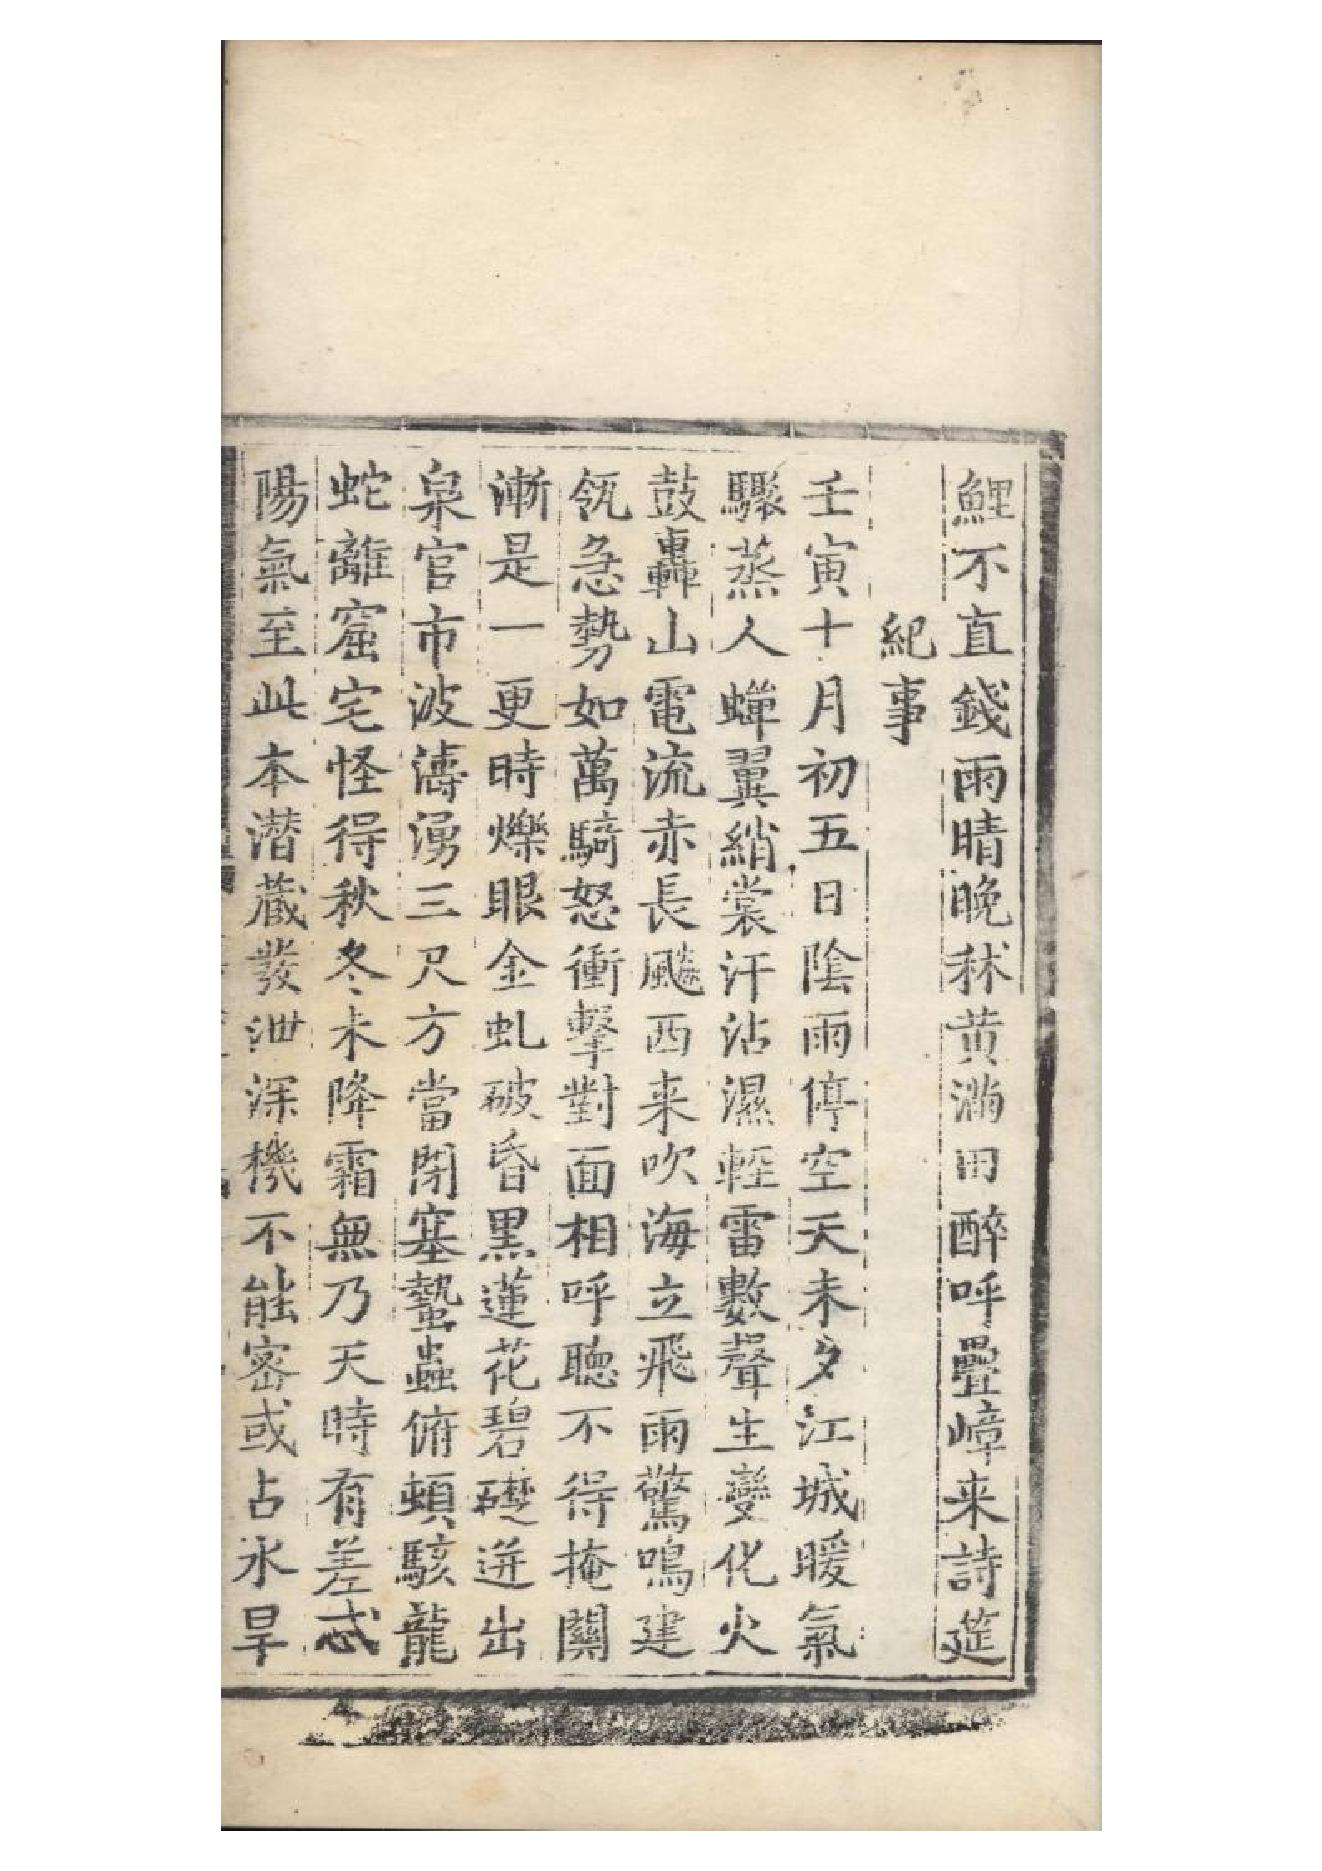 鯉不直錢雨晴晚秫黄滿田醉呼疊嶂来詩筵
紀事
壬寅十月初五日陰雨停空天未夕江城暖氣
驟蒸人蟬翼綃裳汗沾濕輕雷數聲生變化火
鼓轟山電流赤長飈西来吹海立飛雨驚鳴建
瓴急勢如萬騎怒衝擊對面相呼聽不得掩關
漸是一更時爍眼金虬破昏黒蓮花碧礎迸出
泉官市波濤湧三尺方當閉塞蟄蟲俯頓駭龍
蛇離窟宅怪得秋冬未降霜無乃天時有差忒
陽氣至此本潜蔵發泄深機不能密或占水旱